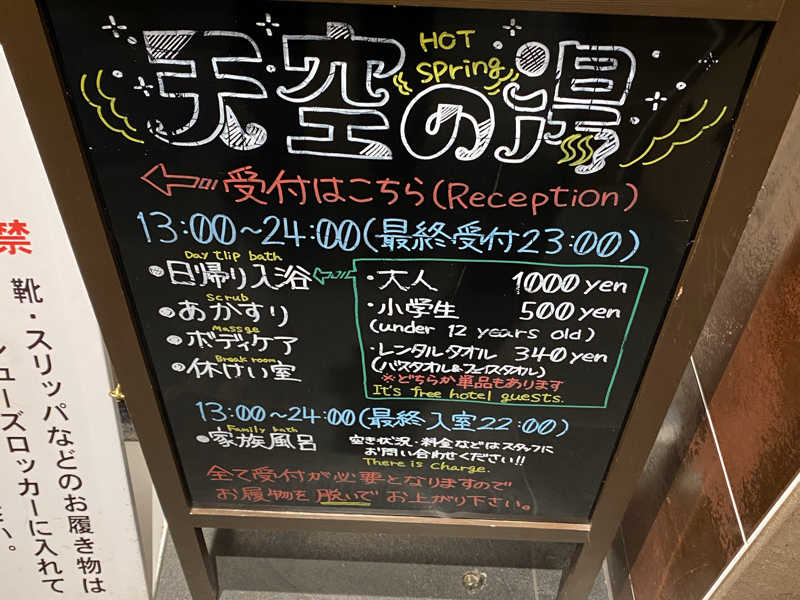 天空の湯
HOT
spring
受付はこちら(Reception)
13:00~24:00(最終受付23:00)
Day tlip bath
・日帰り入浴
scrub
・あかすり
Massge
・ボディケア
Break room
・休けい室
・大人 1000 yen
・小学生 500 yen
(under 12 years old)
・レンタルタオル 340 yen
(バスタオル&フェイスタオル)
※どちらか単品もあります
It's free hotel guests.
13:00~24:00(最終入室22:00)
Family bath
・家族風呂
空き状況・料金などはスタッフに
お問い合わせください!!
There is charge.
全て受付が必要となりますので
お履物を脱いでお上がり下さい。
禁
靴・スリッパなどのお履き物は
シューズロッカーに入れて